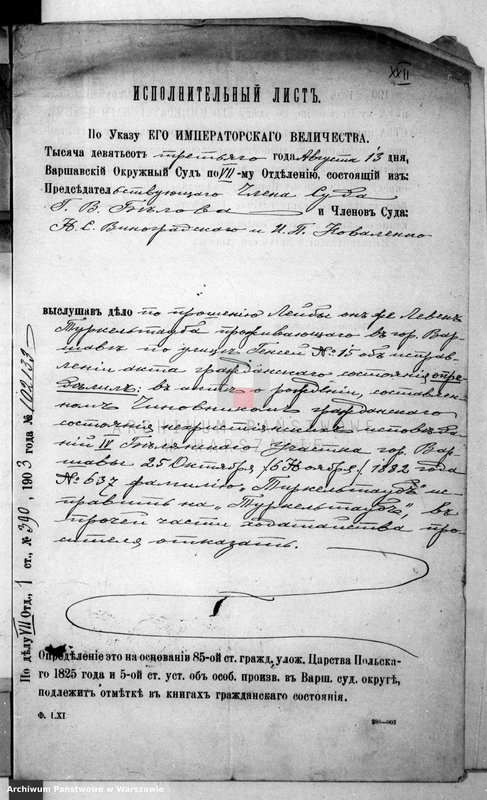 XXII
ИСПОЛНИТЕЛЬНЫЙ ЛИСТЪ.
По Указу ЕГО ИМПЕРАТОРСКАГО ВЕЛИЧЕСТВА.
Тысяча девятьсот третьяго года Августа 13 дня,
Варшавскій Окружный Судъ по VII-му Отдѣленію, состоящій изъ:
Предсѣдательствующаго Члена Суда
Г. В. Бѣлова и Членовъ Суда:
Н. С. Виноградскаго и И. П. Коваленко
выслушавъ дѣло по прошенію Лейбы онъ же Левекъ
Туркельтауба проживающаго въ гор. Вар-
шавѣ по улицѣ Генсей № 15 объ исправ-
леніи акта гражданскаго состоянія, опре-
дѣлилъ: въ актѣ о рожденіи, составлен-
номъ Чиновникомъ гражданскаго
состоянія нехристіанскихъ исповѣда-
ній IV Участка гор. Вар-
шавы 25 Октября /6 Ноября/ 1882 года
№ 637 фамилію „ исправить на „Туркельтаубъ", въ
прочей части ходатайства про-
сителя, отказать.
Опредѣленіе это на основаніи 85-ой ст. гражд. улож. Царства Польска-
го 1825 года и 5-ой ст. уст. объ особ. произв. въ Варш. суд. округѣ,
подлежитъ отмѣткѣ въ книгахъ гражданскаго состоянія.
Ф. LXI.
280—903
По дѣлу VII Отд., 1 ст., № 390, 1903 года № 102133
ARCHIWUM PAŃSTWOWE
W WARSZAWIE
Archiwum Państwowe w Warszawie